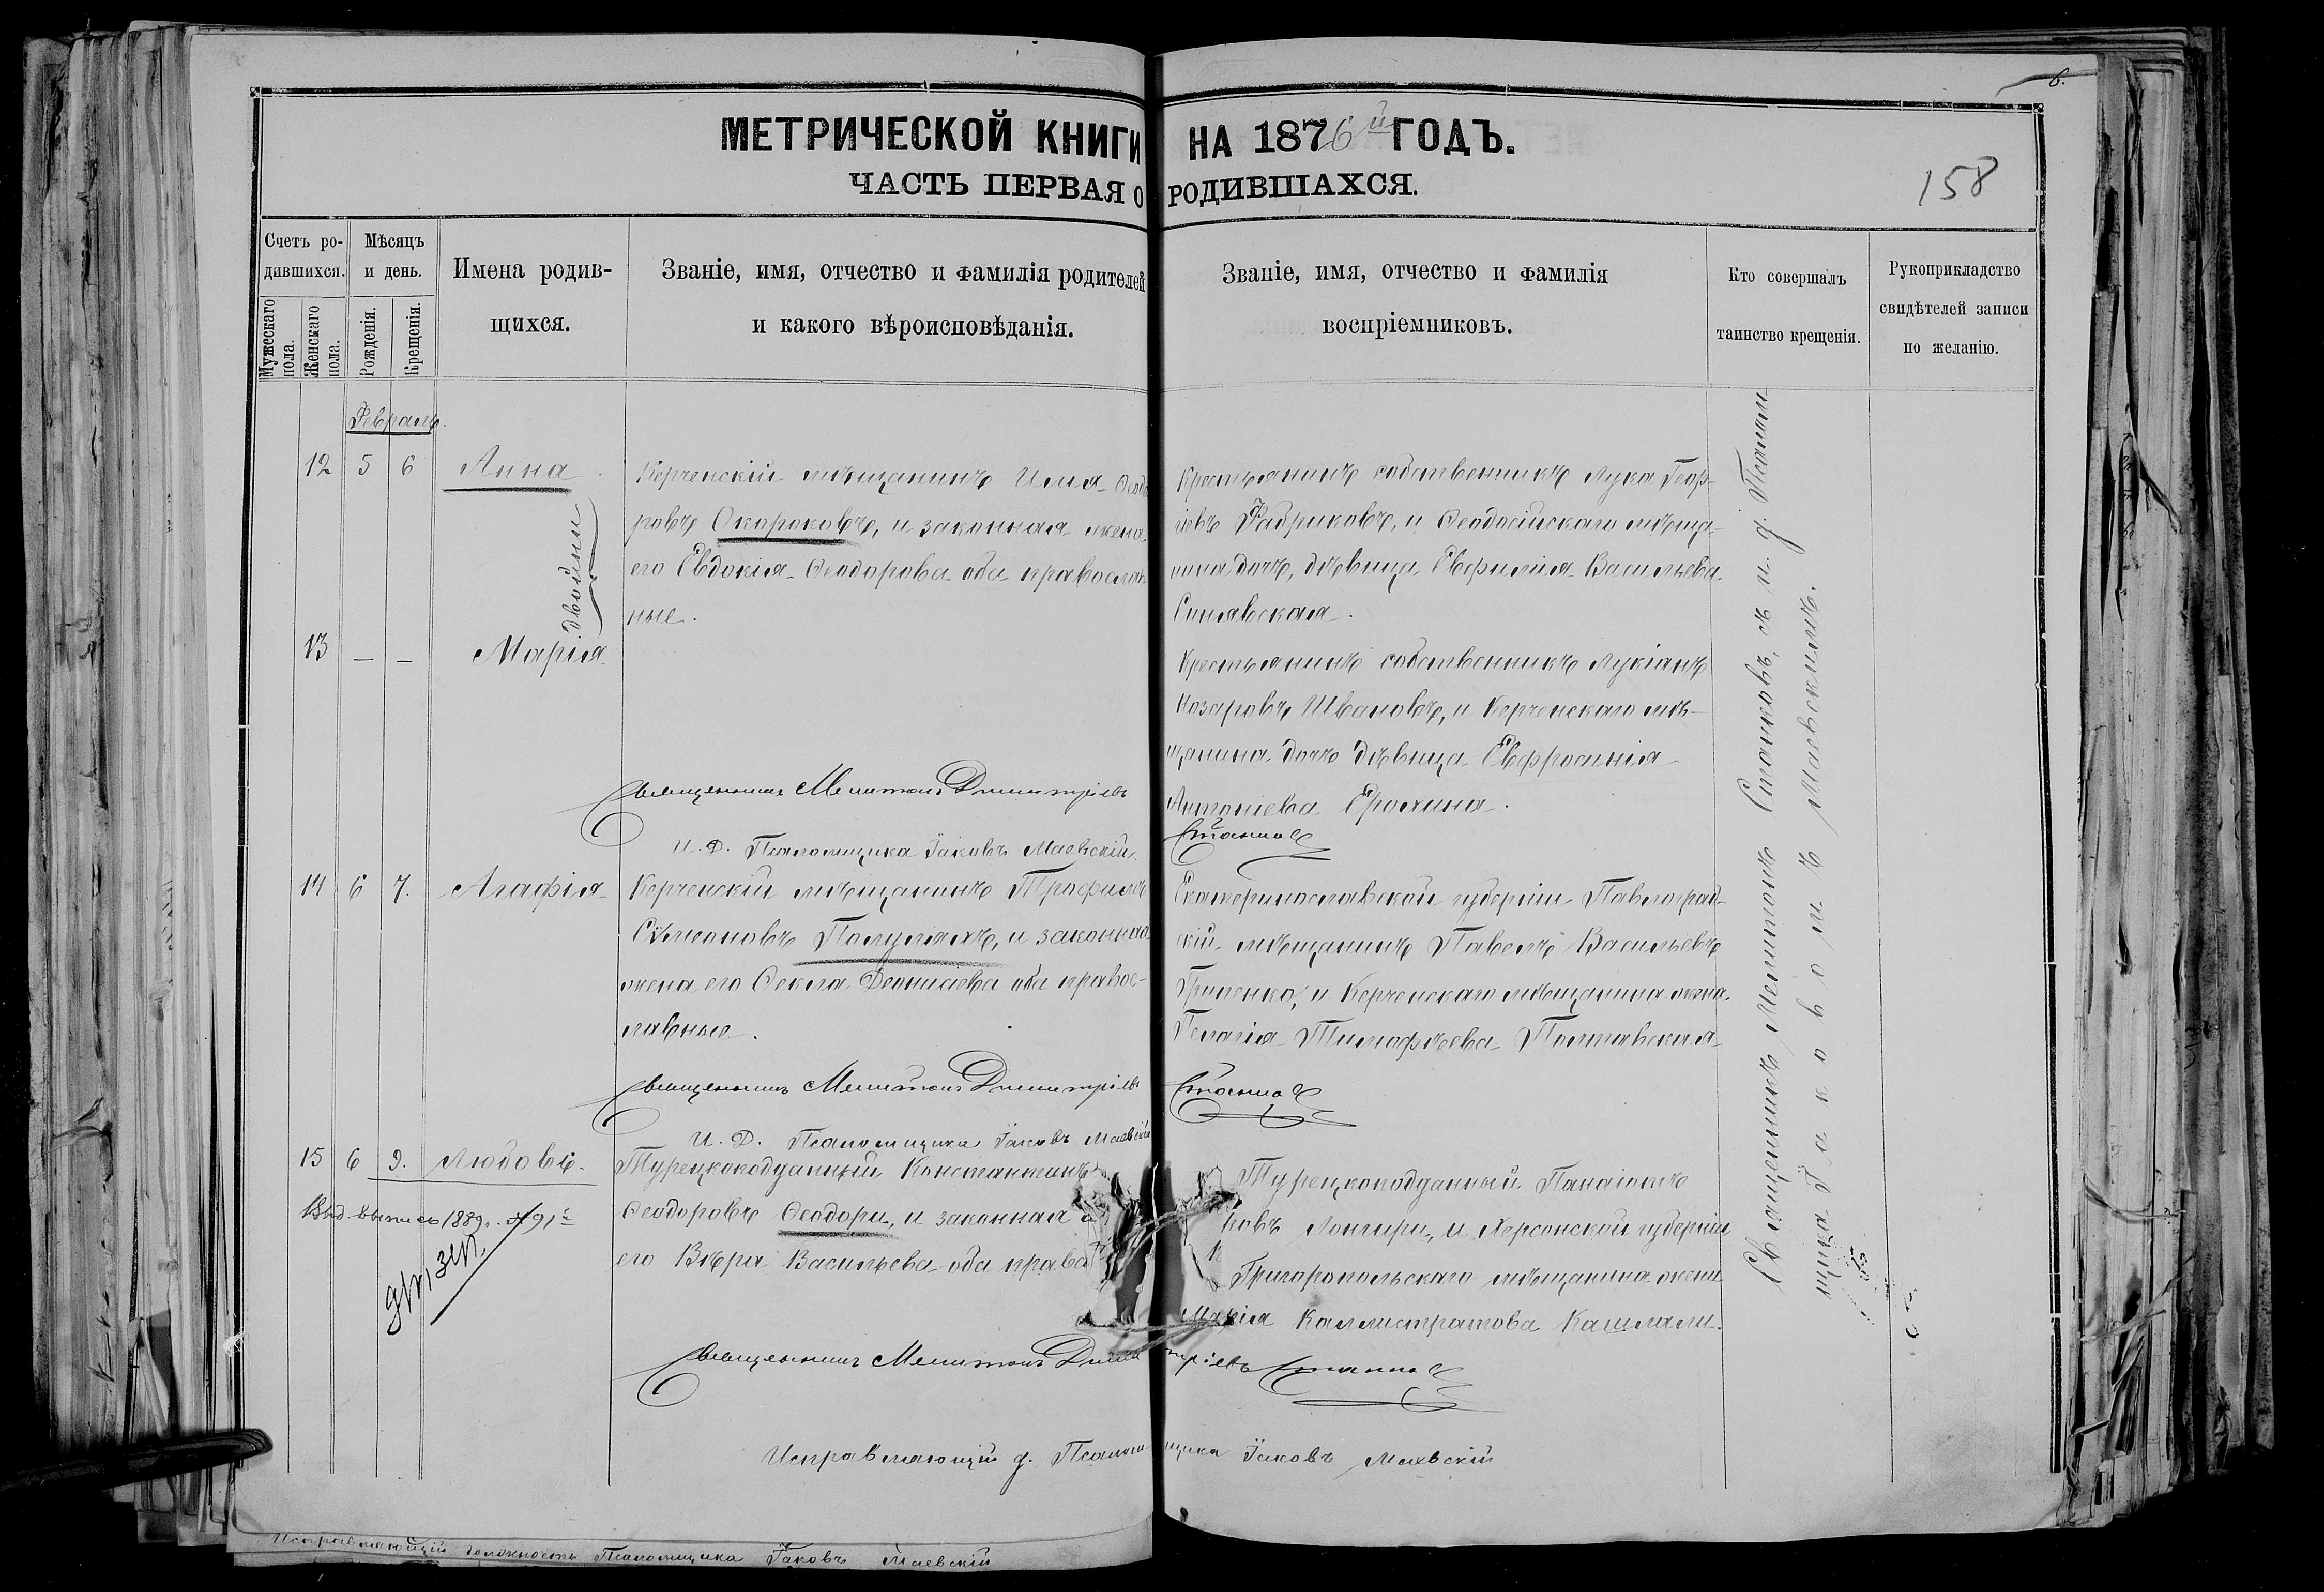 6.
МЕТРИЧЕСКОЙ КНИГИ НА 1876й ГОДЪ.
ЧАСТЬ ПЕРВАЯ О РОДИВШАХСЯ.
158
Счетъ ро-
дившихся.
Мужескаго пола.
Женскаго пола.
Мѣсяцъ
и день.
Рожденія.
Крещенія.
Имена родив-
щихся.
Званіе, имя, отчество и фамилія родителей
и какого вѣроисповѣданія.
Званіе, имя, отчество и фамилія
воспріемниковъ.
Кто совершалъ
таинство крещенія.
Рукоприкладство
свидѣтелей записи
по желанію.
Февраль.
12 5 6 Анна
двойни
Керченскій мѣщанинъ Илія Ѳеодо
ровъ Окороковъ, и законная жена
его Евдокія Ѳеодорова оба православ
ные.
Крестьянинъ собственникъ Лука Геор-
іевъ Фабриковъ, и Ѳеодосійскаго мѣща-
нина дочь, дѣвица Евфимія Васильева
Синявская.
13 — — Марія
Крестьянинъ собственникъ Лукіанъ
Назаровъ Ивановъ, и Керченскаго мѣ-
щанина дочь дѣвица Евфросинія
Антоніева Ерохина.
Священникъ Мелитонъ Димитріевъ
Станков
И. Д. Псаломщика Іаковъ Маевскій.
14 6 7. Агафія
Керченскій мѣщанинъ Трофимъ
Сѵмеоновъ Полуляхъ, и законная
жена его Ѳекла Деонисіева оба правос-
лавные.
Екатеринославской губерніи Павлоград-
скій мѣщанинъ Павелъ Васильевъ
Гриценко, и Керченскаго мѣщанина жена
Пелагія Тимофѣева Полтавская
Священникъ Мелитонъ Димитріевъ
Станков
И. Д. Псаломщика Іаковъ Маевскій
15 6 9. Любовь.
Выд. выпись 1889г. № 91
Турецкоподданный Константинъ
Ѳеодоровъ Ѳеодори, и законная
его Вѣра Васильева оба право
Турецкоподданный Панаіотъ
ковъ Лонгири, и Херсонской губерніи
Григоропольскаго мѣщанина жена
Марія Каллистратова Кашлали.
Священникъ Мелитонъ Димитріевъ Станков
Исправляющій д. Псаломщика Іаковъ Маевскій
Священникъ Мелитонъ Станковъ, съ и. д. Псалом
щика Іаковомъ Маевскимъ.
Исправляющій должность Псаломщика Іаковъ Маевскій